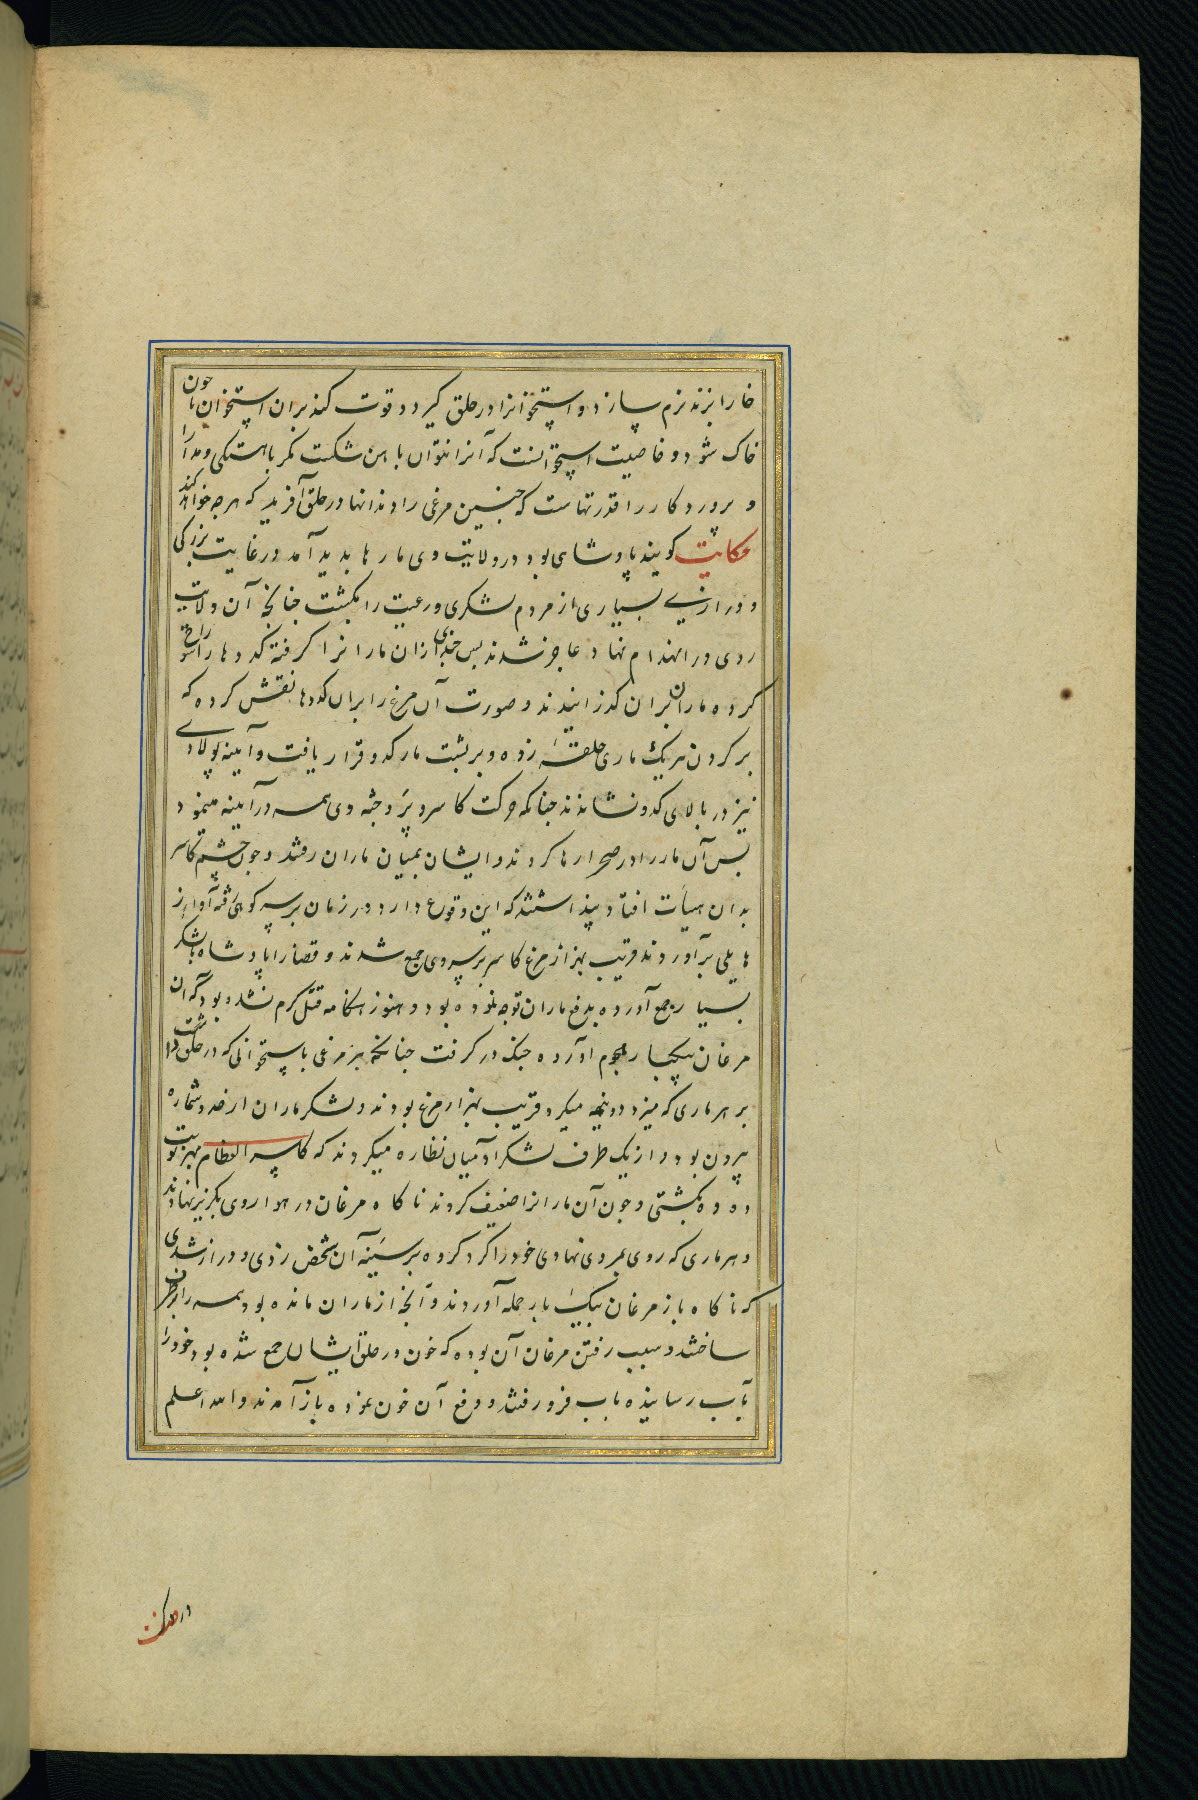 خارا بزند نرم سازد و استخوانرا در حلق گیرد و قوت کند بران استخوان تا چون
خاک شود و خاصیت استخوانست که آنرا نتوان باهن شکست مگر باهستگی و مدارا
و پروردکار را قدرتهاست که چنین مرغی را دندانها در حلق آفرید که هرچه خواهد کند
حکایت کویند پادشاهی بود در ولایت وی مارها پدید آمد در غایت بزرکی
و درازی بسیاری از مردم لشکری و رعیت را بکشت چنانچه آن ولایت
روی در انهدام نهاد عاجز شدند پس چندی ازان مارانرا کرفته کدوها را سوراخ
کرده مارانرا بران کذرانیدند و صورت آن مرغ را بران کدوها نقش کرده که
بر کردن هریک ماری حلقه زده و بر پشت مار کدو قرار یافت و آیینه پولادی
نیز در بالای کدو نشاندند چنانکه حرکت کاسر و پر و جثه وی همه در آیینه مینمود
پس آن مار را در صحرا رها کردند و ایشان بمیان ماران رفتند و چون چشم کاسر
بدان هیأت افتاد پنداشتند که این وقوع دارد در زمان بر سر کوهی رفته آواز
هایلی برآوردند قریب بهزار مرغ کاسر بر سر وی جمع شدند و قضا را پادشاه لشکر
بسیار جمع آورده بدفع ماران توجه نموده بود و هنوز هنکامه قتل کرم نشده بود که آن
مرغان بیکبار هجوم آورده جنک در کرفت چنانکه هر مرغی باستخوانی که در حلق داشت
بر هر ماری که میزد دو نیمه میکرد قریب بهزار مرغ بودند و لشکر ماران از حد و شماره
بیرون بود و از یک طرف لشکر آدمیان نظاره میکردند که کاسر العظام بهر نوبت
ده ده بکشتی و چون آن مارانرا ضعیف کردند ناکاه مرغان در هوا روی بکریز نهادند
و هر ماری که روی بمردی نهادی خود را کرد کرده بر سینه آن شخص زدی و دراز شدی
که ناکاه باز مرغان بیکبار حمله آوردند و آنچه از ماران مانده بود همه را
ساختند و سبب رفتن مرغان آن بوده که خون در حلق ایشان جمع شده بود خود را
بآب رسانیده بآب فرو رفتند و دفع آن خون نموده باز آمدند والله اعلم